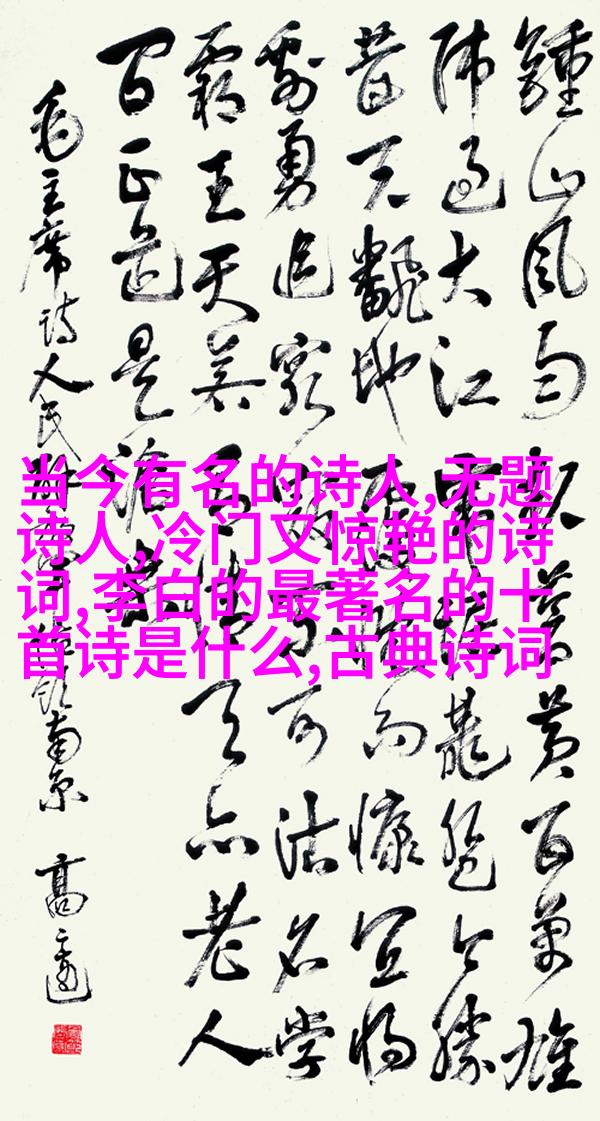 鍾山風雨起蒼黃百萬雄
师過大江虎踞龍盘今勝
昔天翻地覆慨而慷宜将
剩勇追窮寇不可沽名学
霸王天若有情天亦老人
间正道是滄桑
毛主席诗人民解放軍占领南京
当今有名的诗人,无题
诗人,冷门又惊艳的诗
词,李白的最著名的十
首诗是什么,古典诗词